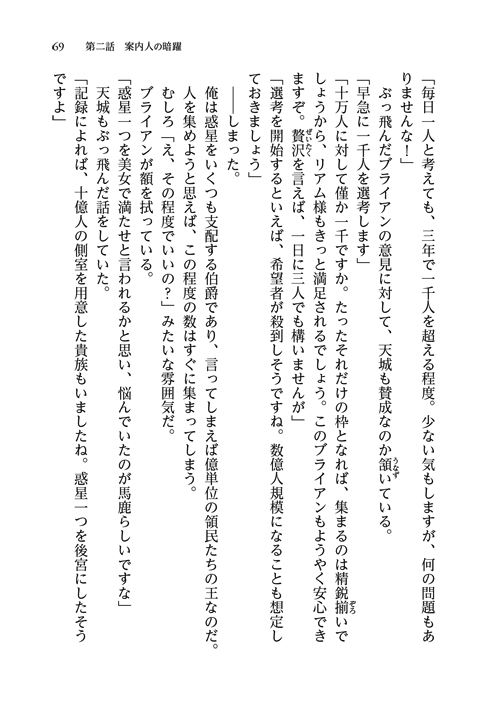 69　第二話　案内人の暗躍
「毎日一人と考えても、三年で一千人を超える程度。少ない気もしますが、何の問題もあ
りませんな！」
ぶっ飛んだブライアンの意見に対して、天城も賛成なのか頷いている。
「早急に一千人を選考します」
「十万人に対して僅か一千ですか。たったそれだけの枠となれば、集まるのは精鋭揃いで
しょうから、リアム様もきっと満足されるでしょう。このブライアンもようやく安心でき
ますぞ。贅沢を言えば、一日に三人でも構いませんが」
「選考を開始するといえば、希望者が殺到しそうですね。数億人規模になることも想定し
ておきましょう」
――しまった。
俺は惑星をいくつも支配する伯爵であり、言ってしまえば億単位の領民たちの王なのだ。
人を集めようと思えば、この程度の数はすぐに集まってしまう。
むしろ「え、その程度でいいの？」みたいな雰囲気だ。
ブライアンが額を拭っている。
「惑星一つを美女で満たせと言われるかと思い、悩んでいたのが馬鹿らしいですな」
天城もぶっ飛んだ話をしていた。
「記録によれば、十億人の側室を用意した貴族もいましたね。惑星一つを後宮にしたそう
ですよ」